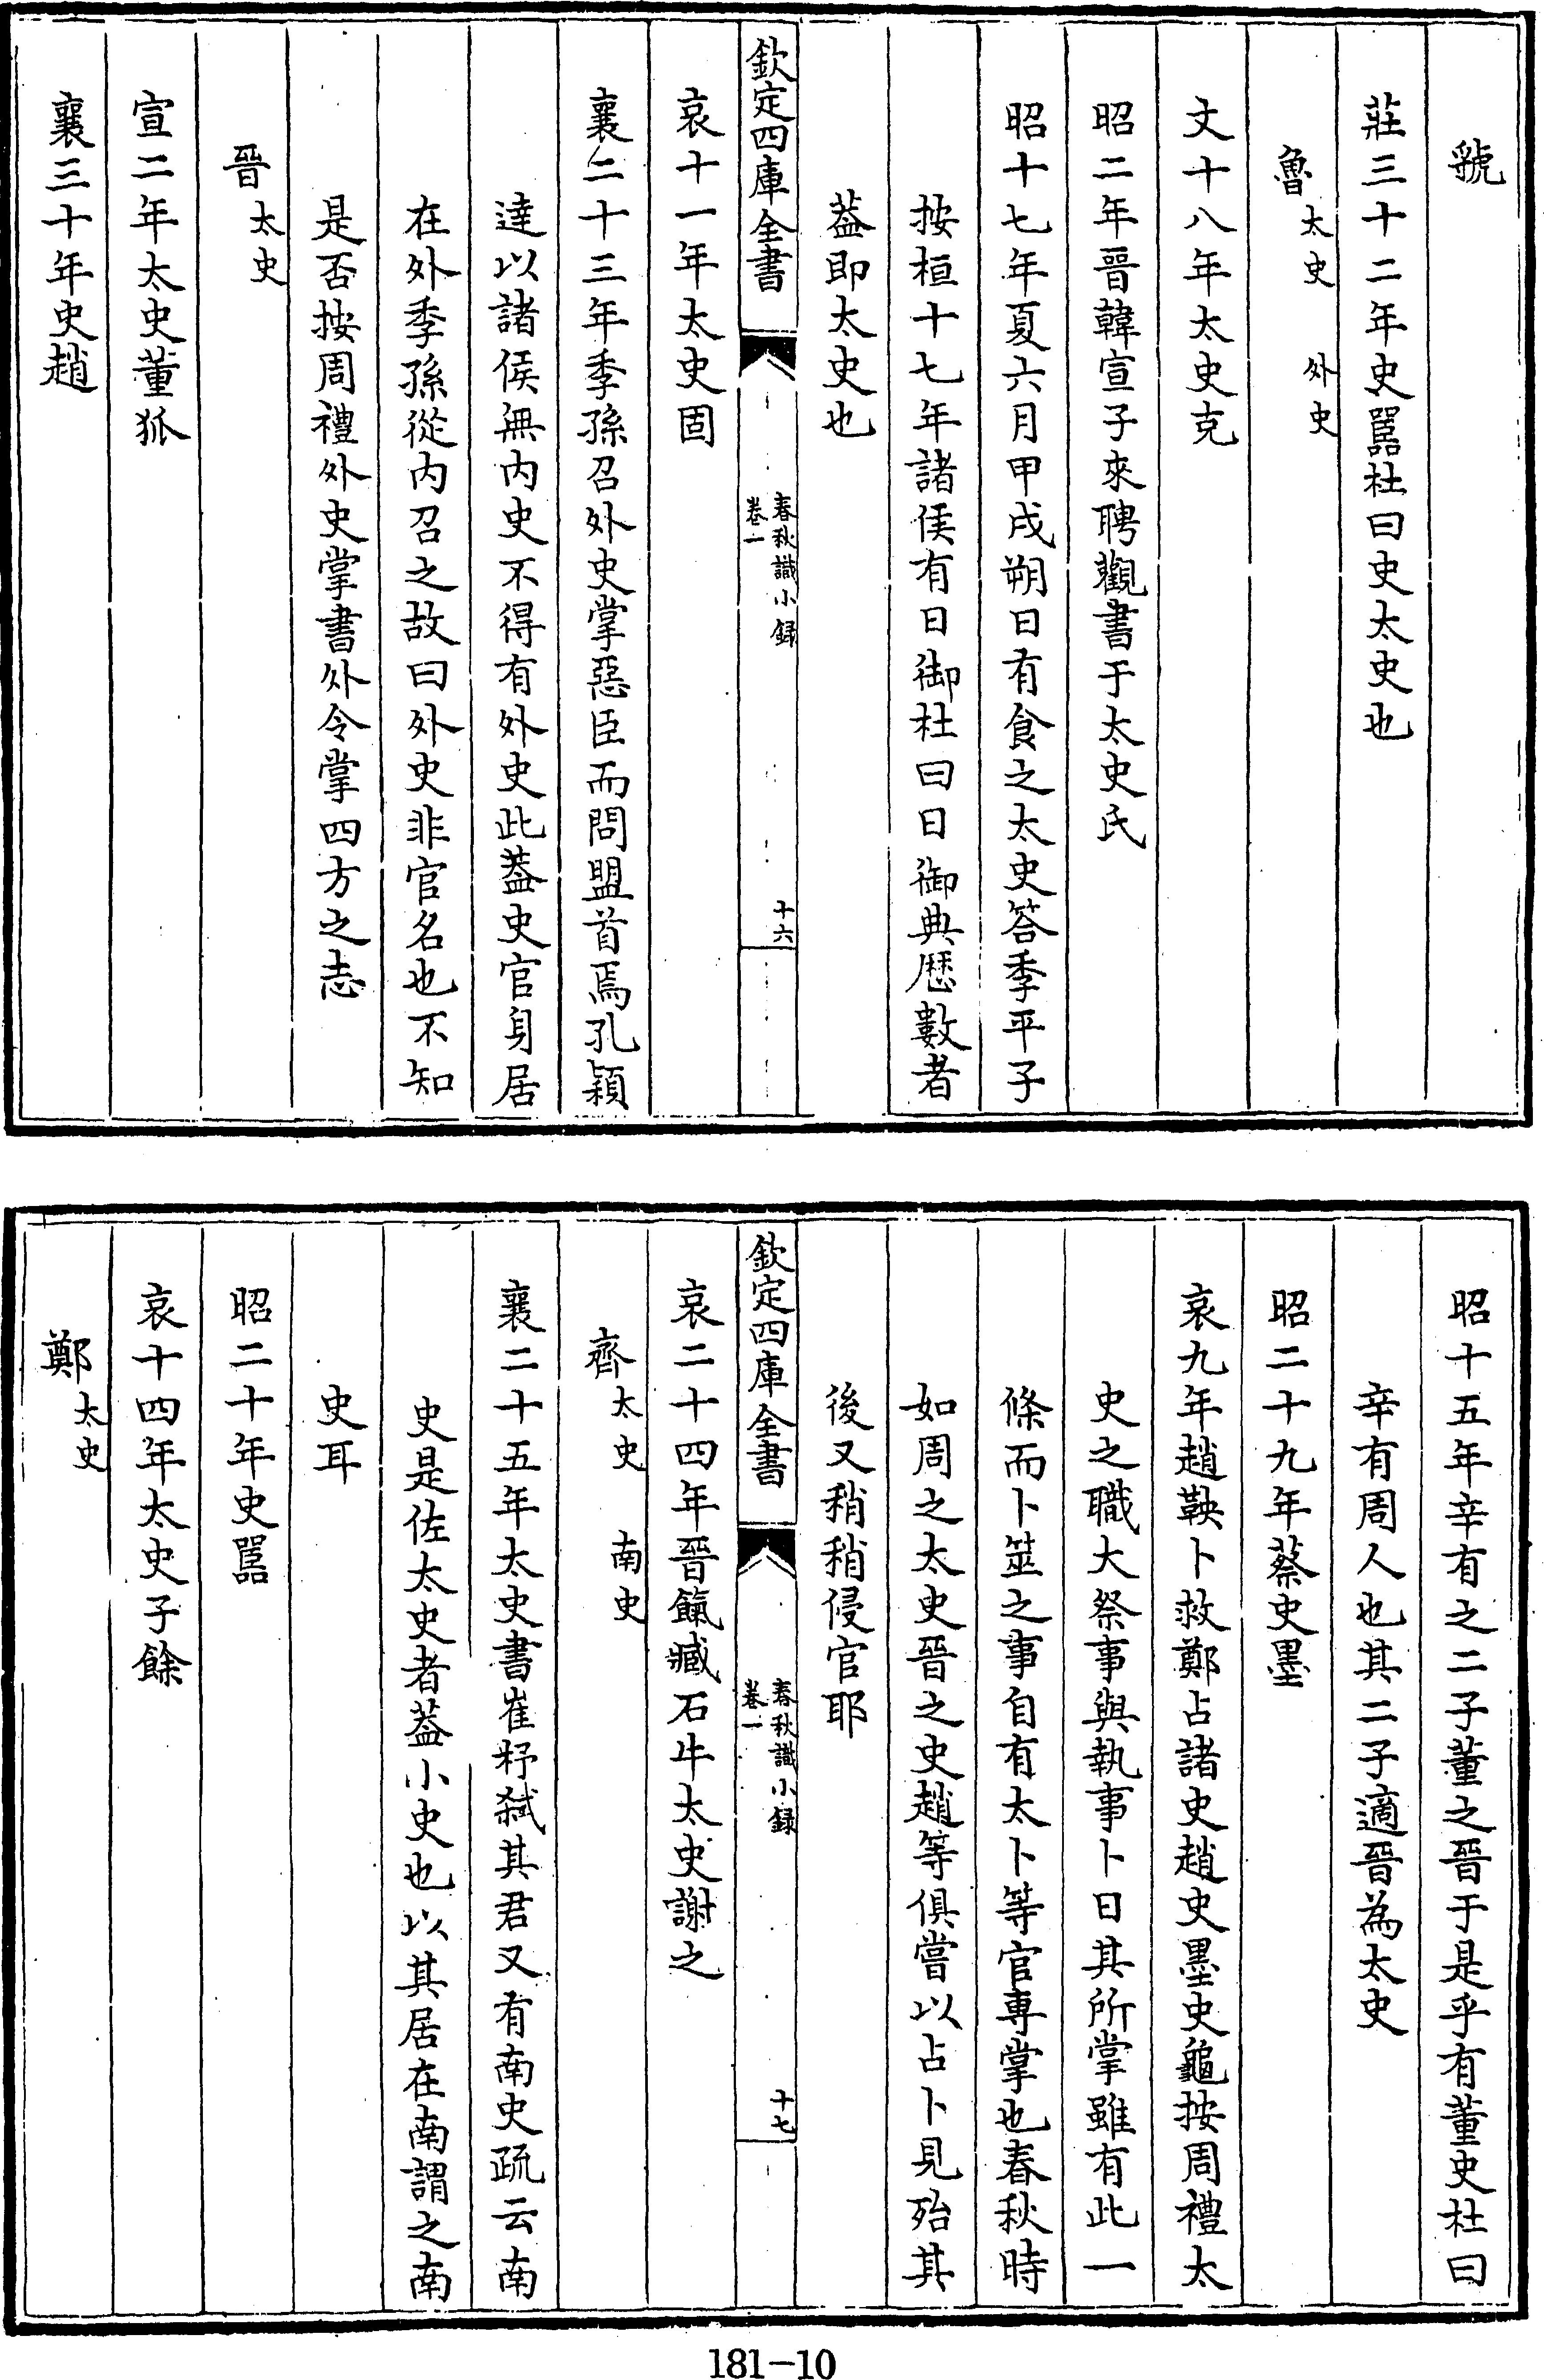 虢
莊三十二年史嚚杜曰史太史也
魯太史 外史
文十八年太史克
昭二年晉韓宣子來聘觀書于太史氏
昭十七年夏六月甲戌朔日有食之太史答季平子
按桓十七年諸侯有日御杜曰日御典厯數者
葢即太史也
欽定四庫全書
春秋識小録
卷一
十六
哀十一年太史固
襄二十三年季孫召外史掌惡臣而問盟首焉孔穎
達以諸侯無内史不得有外史此葢史官身居
在外季孫從内召之故曰外史非官名也不知
是否按周禮外史掌書外令掌四方之志
晉太史
宣二年太史董狐
襄三十年史趙
昭十五年辛有之二子董之晉于是乎有董史杜曰
辛有周人也其二子適晉為太史
昭二十九年蔡史墨
哀九年趙鞅卜救鄭占諸史趙史墨史龜按周禮太
史之職大祭事與執事卜日其所掌雖有此一
條而卜筮之事自有太卜等官専掌也春秋時
如周之太史晉之史趙等俱嘗以占卜見殆其
後又稍稍侵官耶
欽定四庫全書
春秋識小録
卷一
十七
哀二十四年晉餼臧石牛太史謝之
齊太史 南史
襄二十五年太史書崔杼弑其君又有南史疏云南
史是佐太史者葢小史也以其居在南謂之南
史耳
昭二十年史嚚
哀十四年太史子餘
鄭太史
181-10